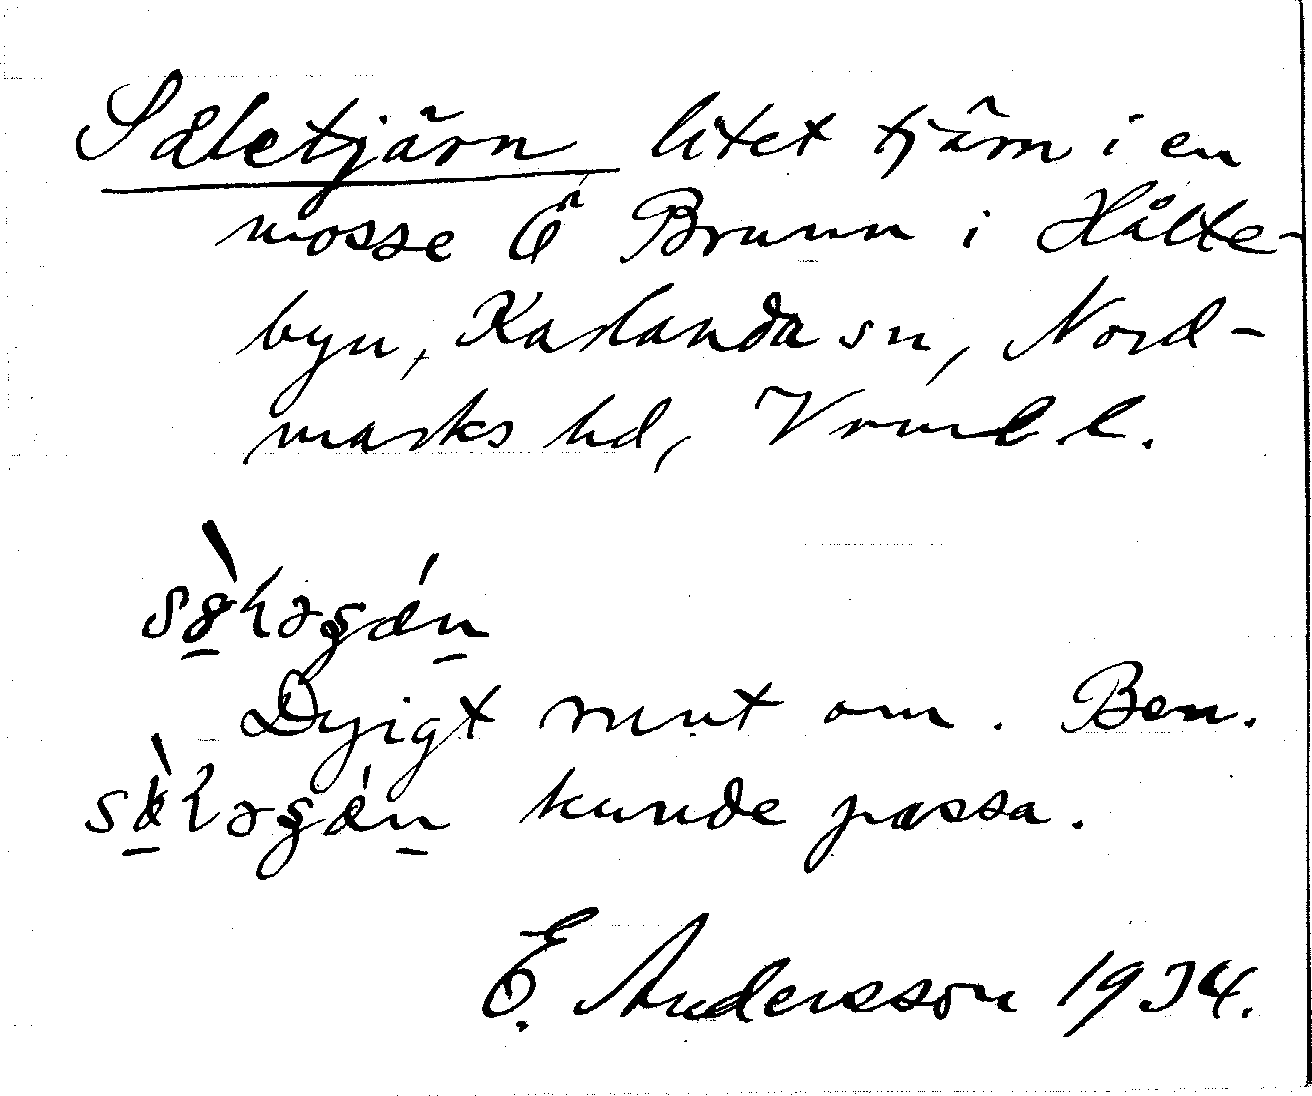 Säletjärn litet tjärn i en
mosse Ö Brunn i Hålte-
byn, Karlanda sn, Nord-
marks hd, Vrml. l.
Dyigt runt om. Ben.
kunde passa.
E. Andersson 1934.